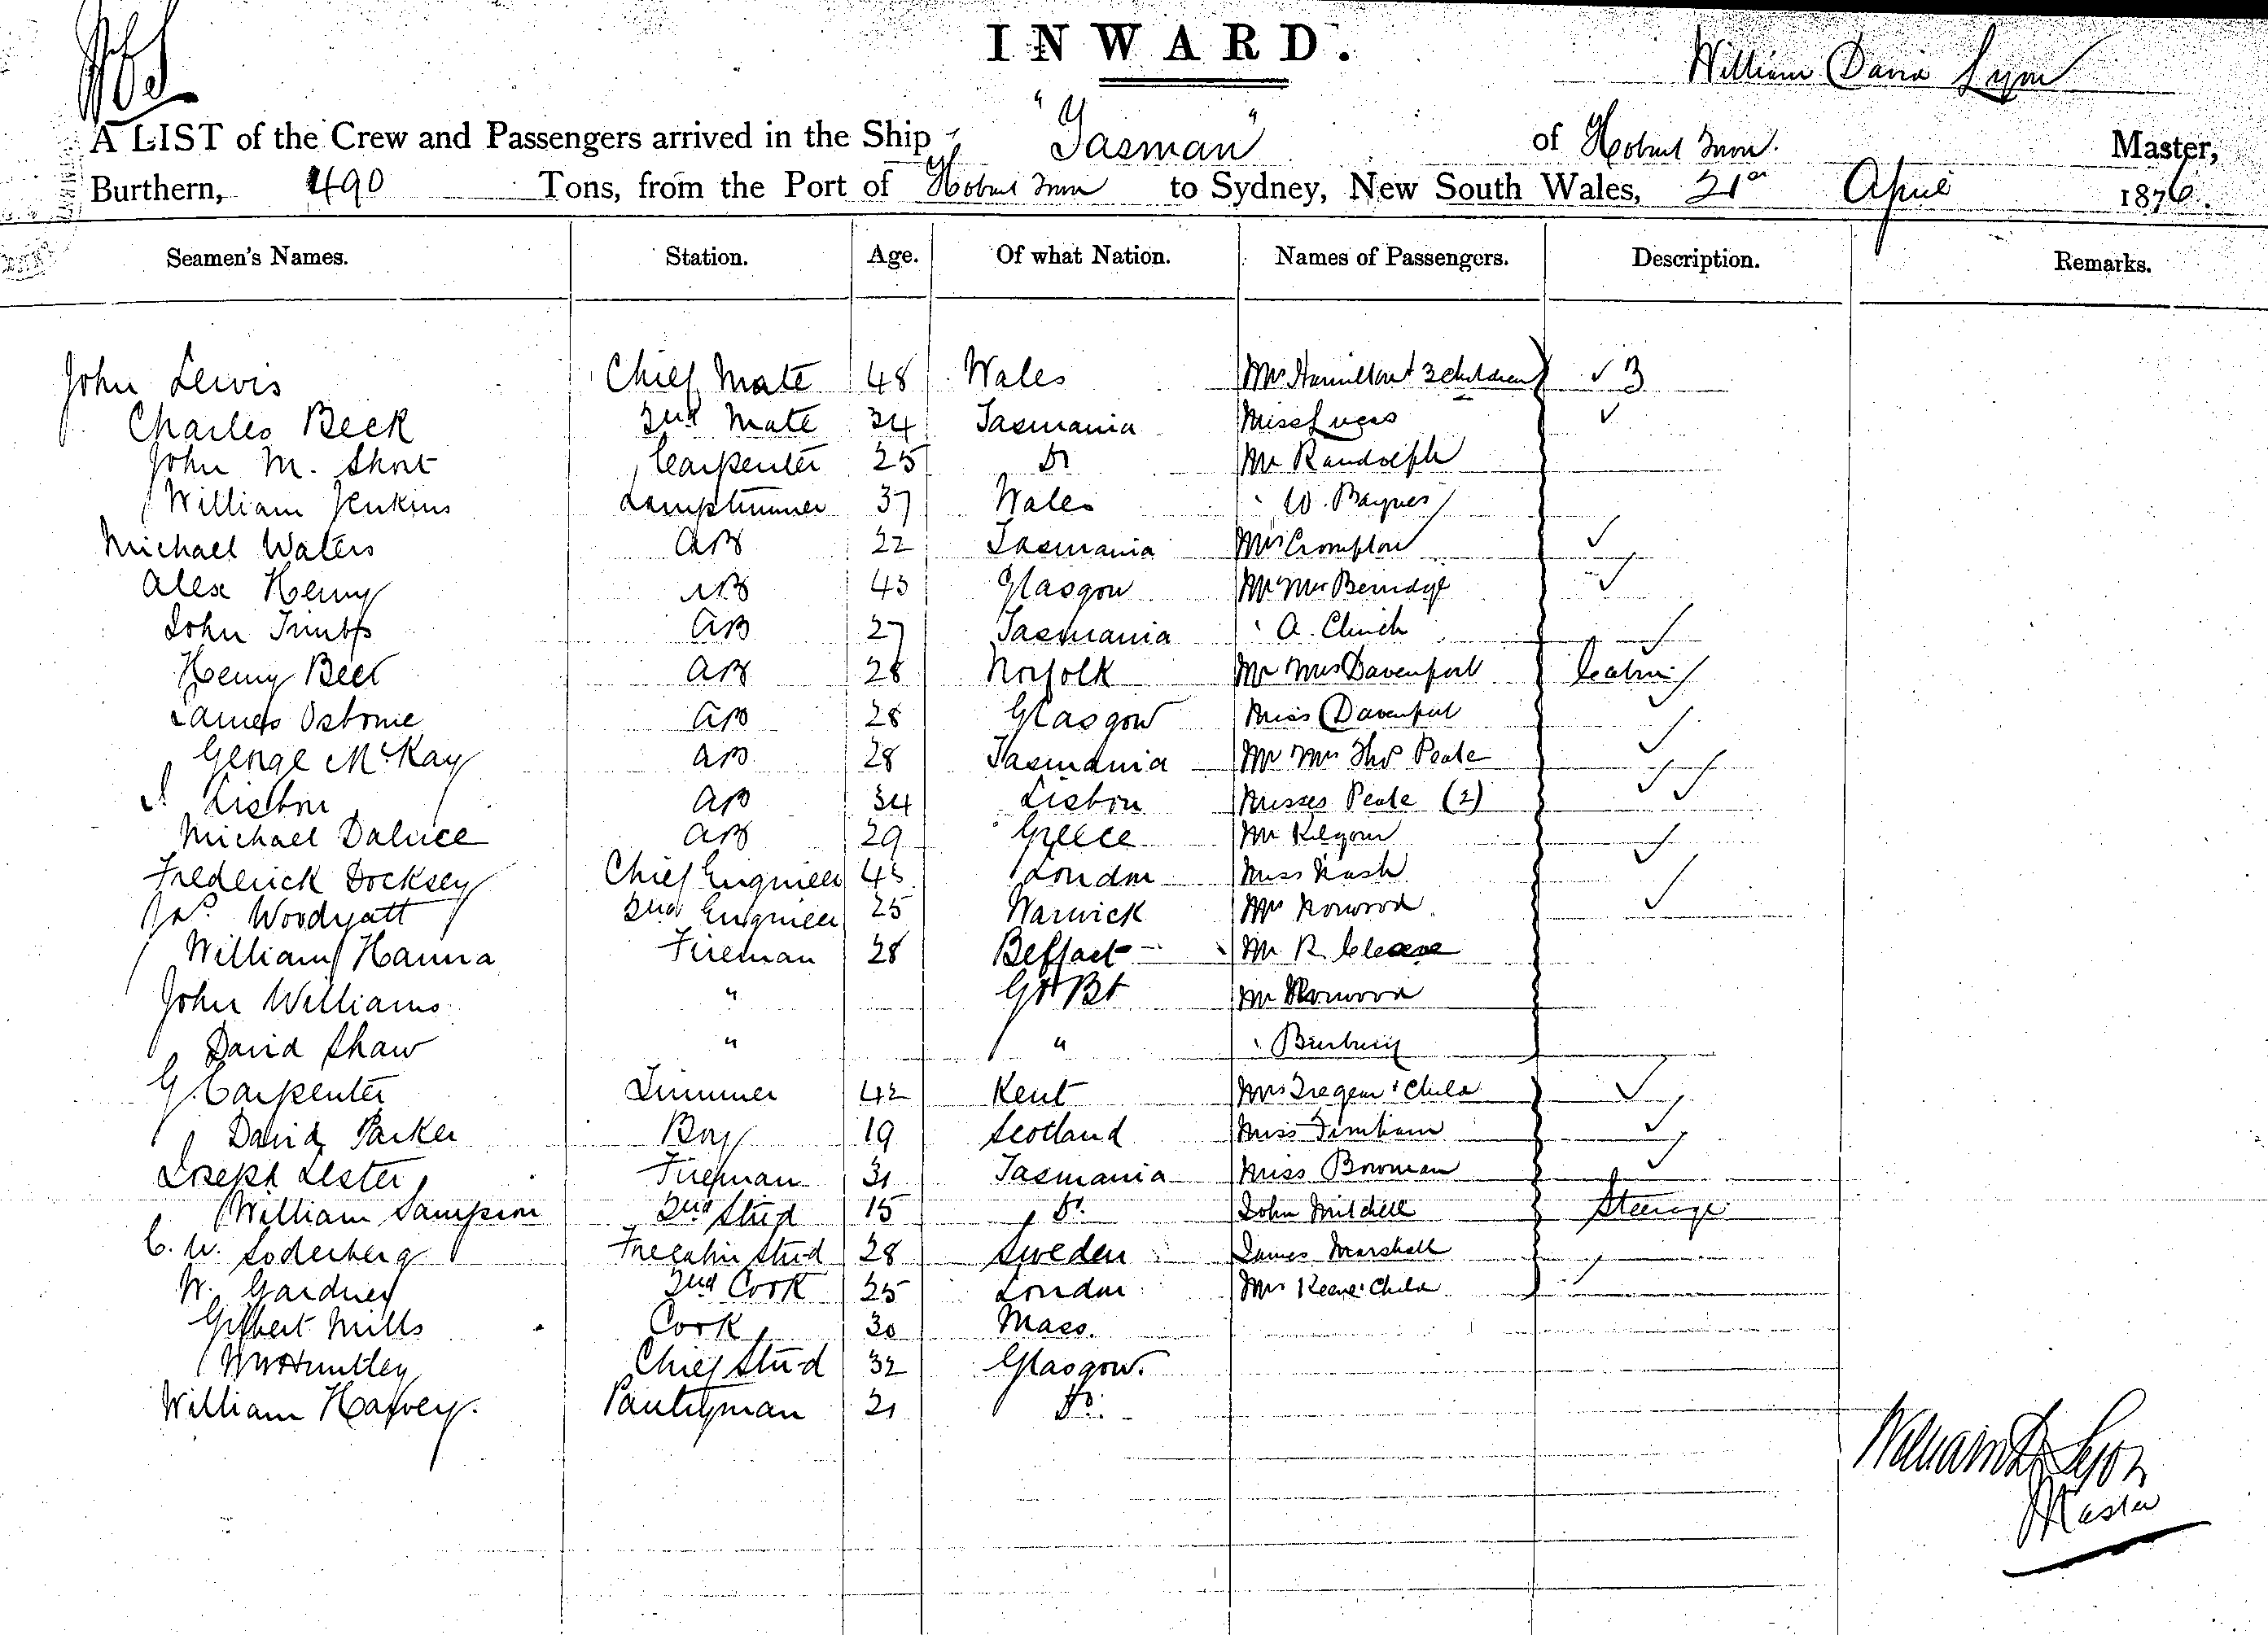 INWARD.
William David Lyon
A LIST of the Crew and Passengers arrived in the Ship "Tasman" of Hobart Town. Master,
Burthern, 490 Tons, from the Port of Hobart Town to Sydney, New South Wales, 21st April 1876.
Seamen's Names. Station. Age. Of what Nation. Names of Passengers. Description. Remarks.
John Lewis Chief Mate 48 Wales Mrs Hamilton & 3 children ✓ 3
Charles Beck 2nd Mate 34 Tasmania Miss Lucas ✓
John M. Short Carpenter 25 Do Mr Randolph
William Jenkins Lamptrimmer 37 Wales " W. Baynes
Michael Waters AB 22 Tasmania Mrs Crompton ✓
Alex Henry AB 43 Glasgow Mr Mrs Berridge ✓
John AB 27 Tasmania " A. Clinch ✓
Henry Beet AB 28 Norfolk Mr Mrs Davenport Cabin ✓
James Osborne AB 28 Glasgow Miss Davenport ✓
George McKay AB 28 Tasmania Mr Mrs Thos Peate ✓ ✓
Lisbon AB 34 Lisbon Misses Peate (2)
Michael Daluce AB 29 Greece Mr Kilgour ✓
Frederick Docksey Chief Engineer 45 London Miss Nash ✓
Jas. Woodyatt 2nd Engineer 25 Warwick Mrs Norwood
William Hanna Fireman 28 Belfast Mr R. Cleave
John Williams " Gt Bt Mr Norwood
David Shaw " " " Burbury
G. Carpenter Trimmer 42 Kent Mrs Tregear & Child ✓
David Parker Boy 19 Scotland Miss ✓
Joseph Lester Fireman 31 Tasmania Miss Bowman ✓
William Sampson 2nd Stu'd 15 Do. John Mitchell Steerage
C. W. Soderberg Forecabin Stu'd 28 Sweden James Marshall
W. Gardner 2nd Cook 25 London Mrs Keene & Child ✓
Gilbert Mills Cook 30 Mass.
Wm Huntley Chief Stu'd 32 Glasgow.
William Harvey. Pantryman 21 Do.
William D Lyon
Master